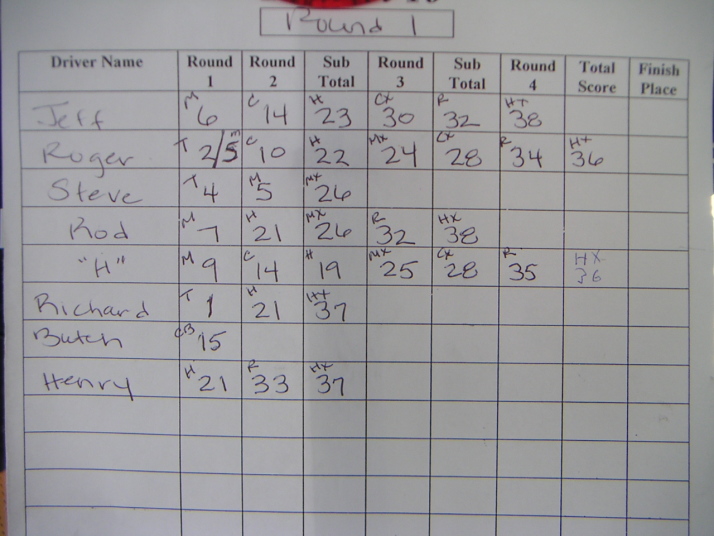 Round 1
Driver Name Round 1 Round 2 Sub Total Round 3 Sub Total Round 4 Total Score Finish Place
Jeff M 6 C 14 H 23 CX 30 R 32 HX 38
Roger T 2/5 M C 10 H 22 MX 24 CX 28 R 34 HX 36
Steve T 4 M 5 MX 26
Rod M 7 H 21 MX 26 R 32 HX 38
"H" M 9 C 14 H 19 MX 25 CX 28 R 35 HX 36
Richard T 1 H 21 HX 37
Butch CB 15
Henry H 21 R 33 HX 37